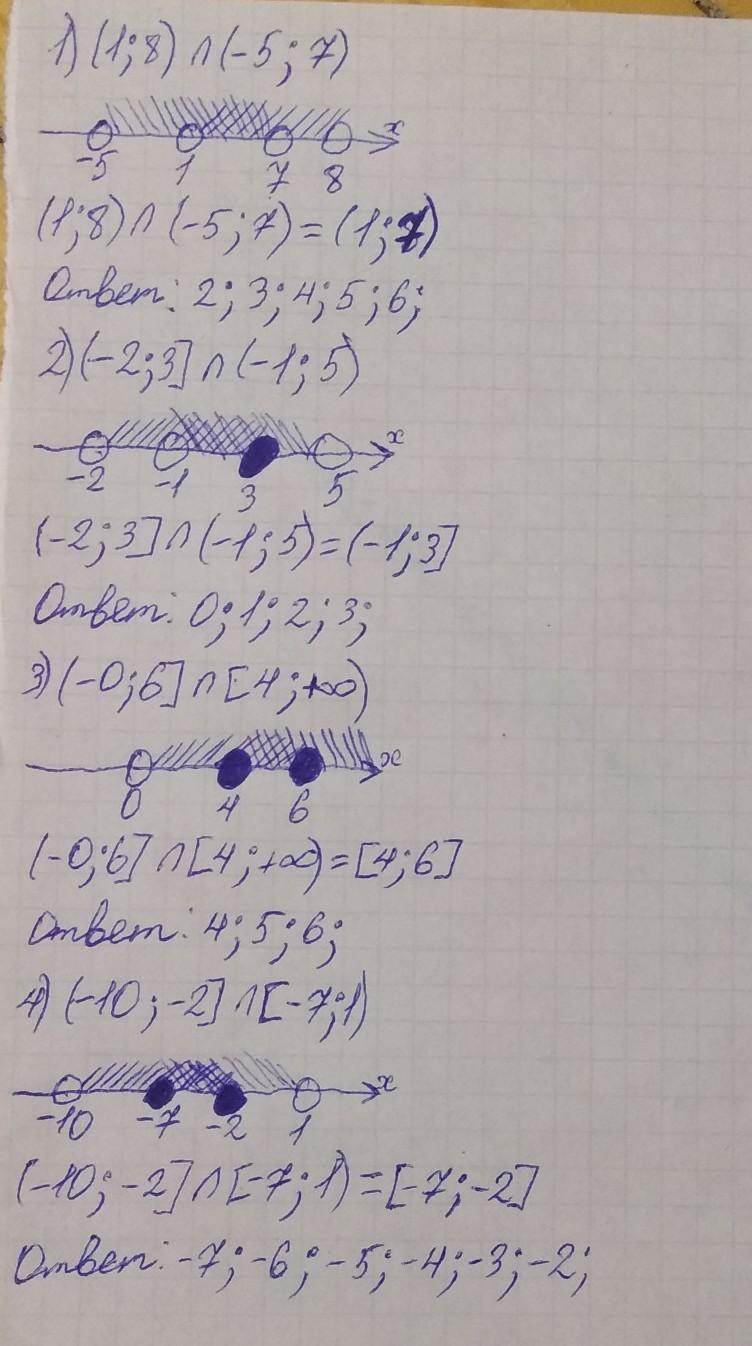 1) (1;8) ∩ (-5;7)
x
-5 1 7 8
(1;8) ∩ (-5;7) = (1;7)
Ответ: 2; 3; 4; 5; 6;
2) (-2;3] ∩ (-1;5)
x
-2 -1 3 5
(-2;3] ∩ (-1;5) = (-1;3]
Ответ: 0; 1; 2; 3;
3) (-0;6] ∩ [4;+∞)
x
0 4 6
(-0;6] ∩ [4;+∞) = [4;6]
Ответ: 4; 5; 6;
4) (-10;-2] ∩ [-7;1)
x
-10 -7 -2 1
(-10;-2] ∩ [-7;1) = [-7;-2]
Ответ: -7; -6; -5; -4; -3; -2;